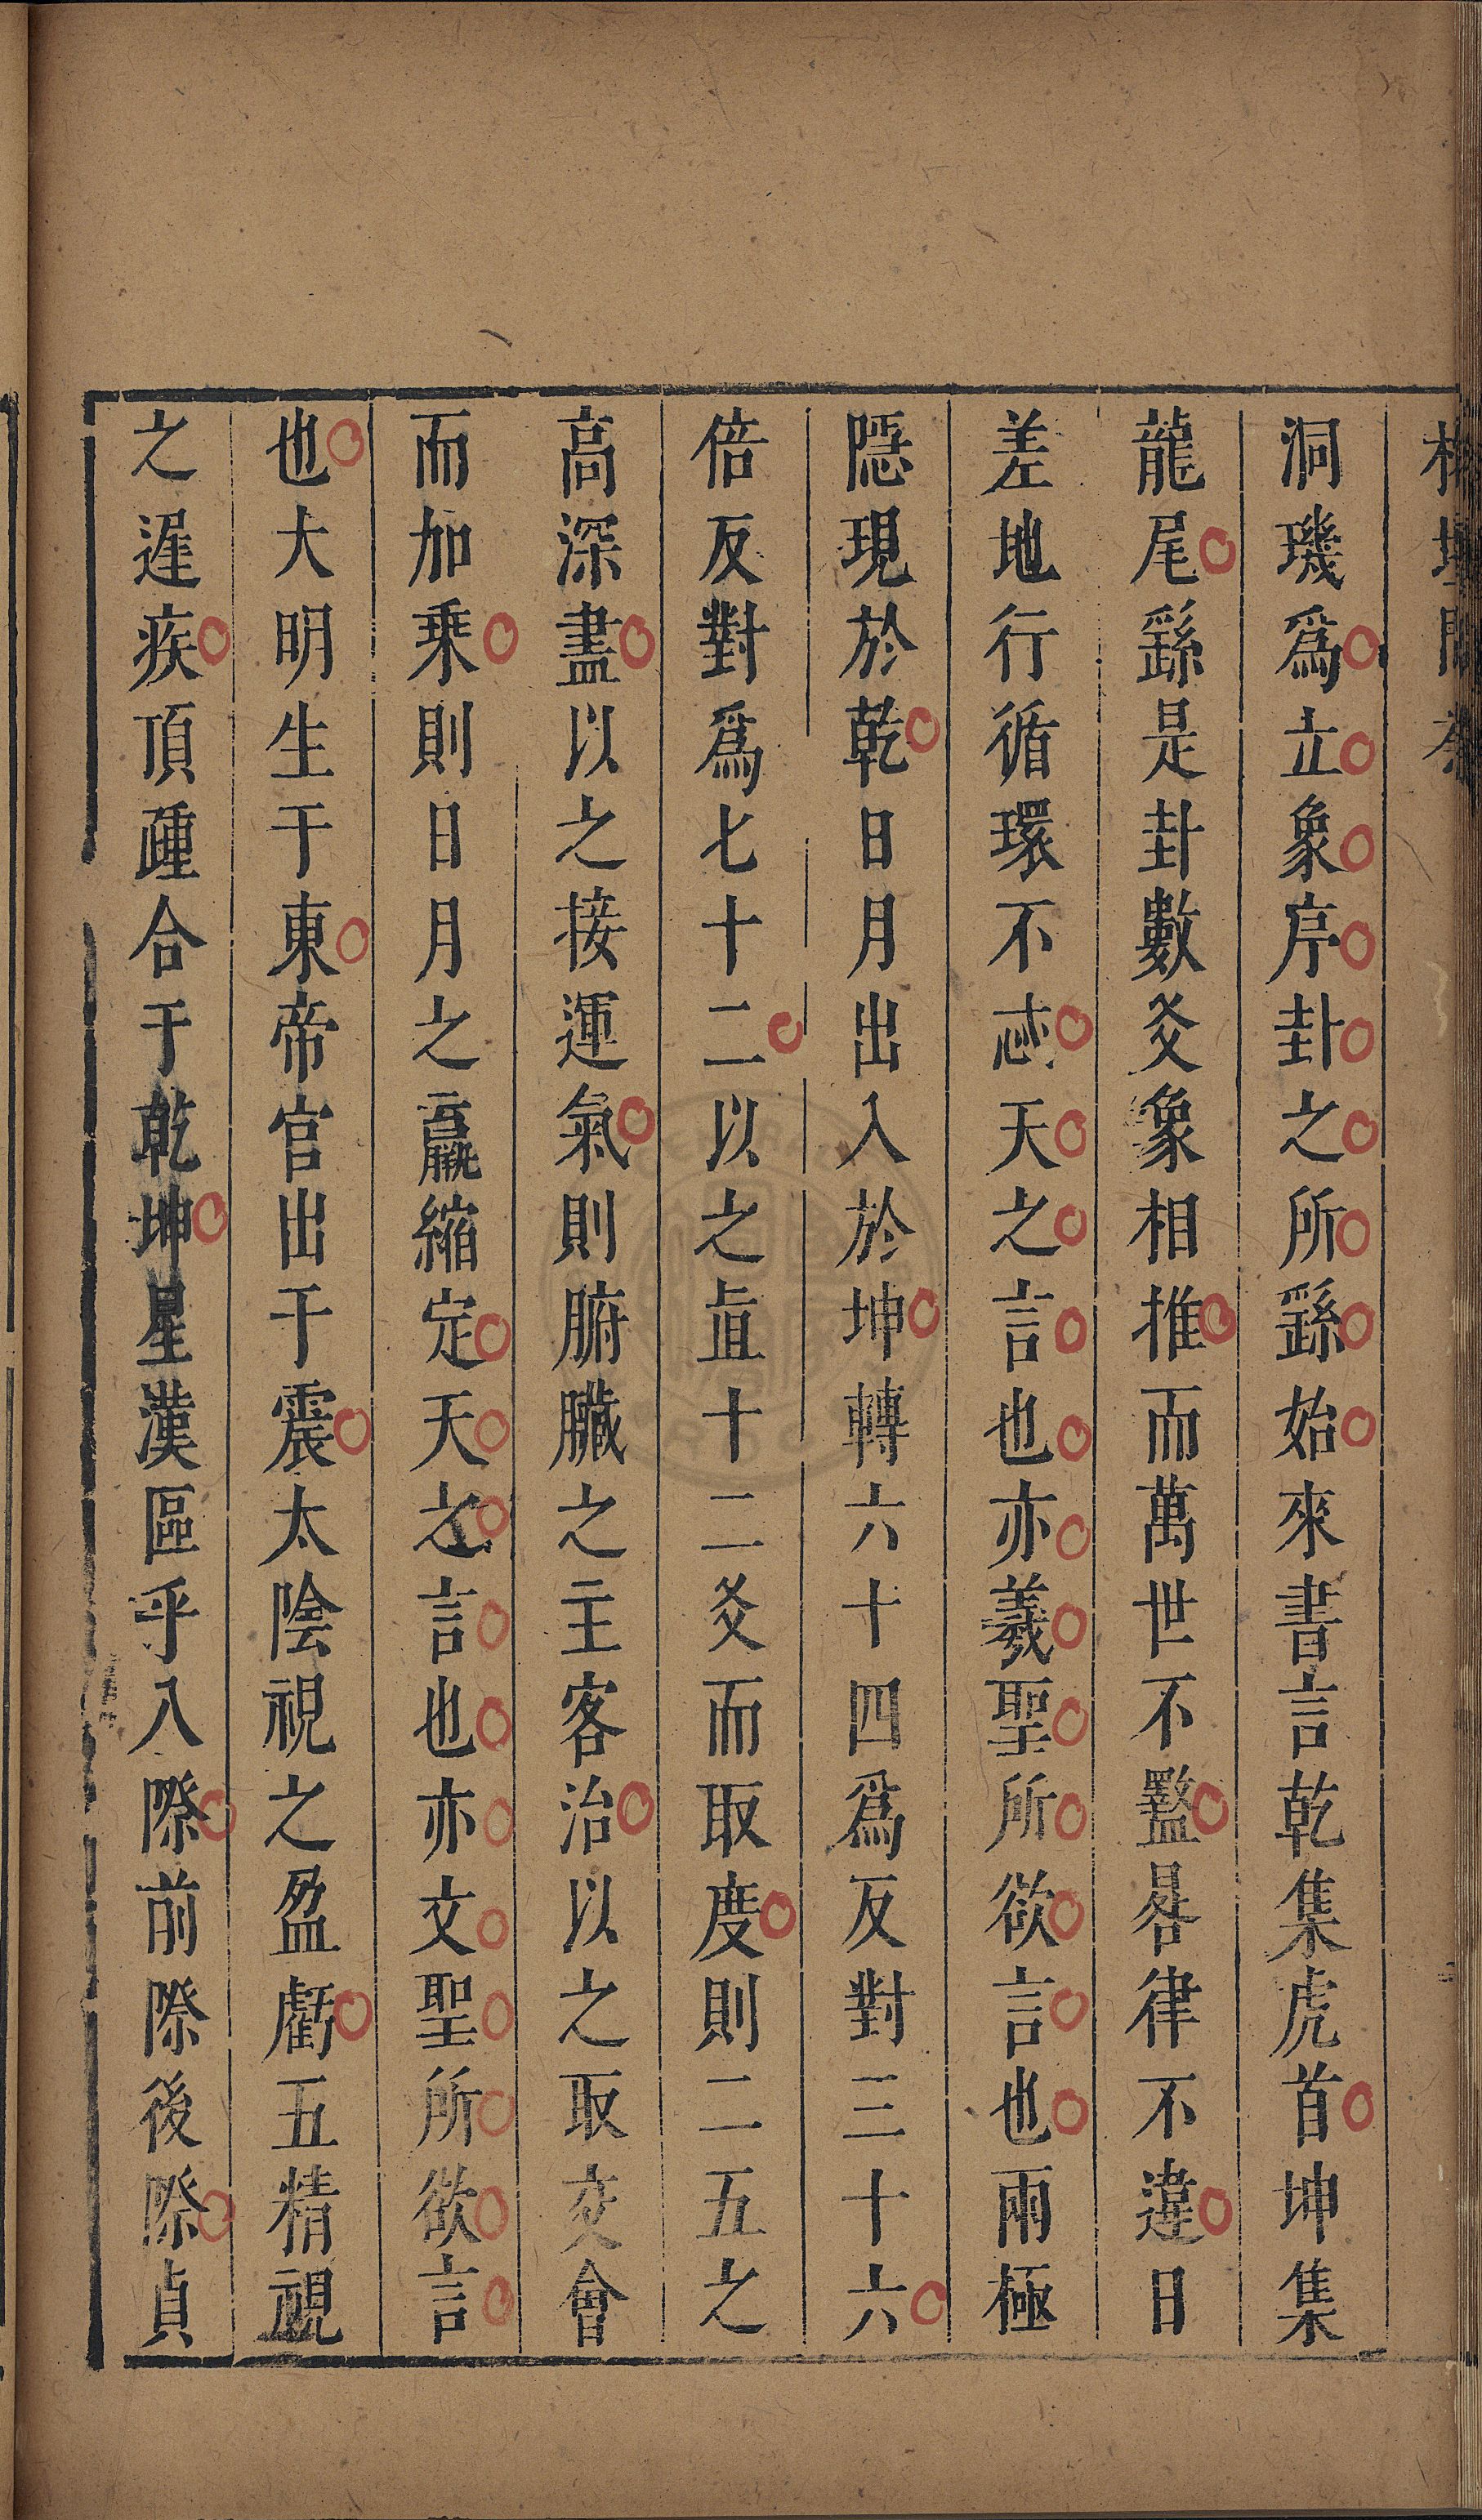 洞璣爲立象序卦之所繇始來書言乾集虎首坤集
龍尾繇是卦數爻象相推而萬世不盭晷律不違日
差地行循環不忒天之言也亦羲聖所欲言也兩極
隱現於乾日月出入於坤轉六十四爲反對三十六
倍反對爲七十二以之直十二爻而取度則二五之
高深晝以之接運氣則腑臟之主客治以之取交會
而加乘則日月之贏縮定天之言也亦文聖所欲言
也大明生于東帝官出于震太陰視之盈虧五精視
之遲疾頂踵合于乾坤星漢區乎入際前際後際貞